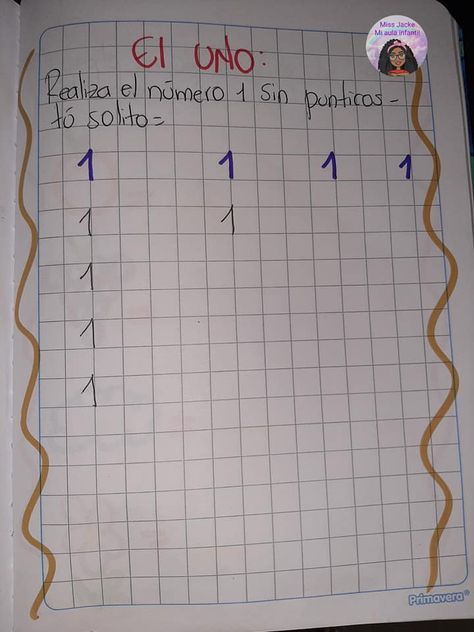 Miss Jacke
Mi aula infantil
El UNO:
Realiza el número 1 sin punticos -
tú solito=
1 1 1 1
1 1
1
1
1
Primavera®